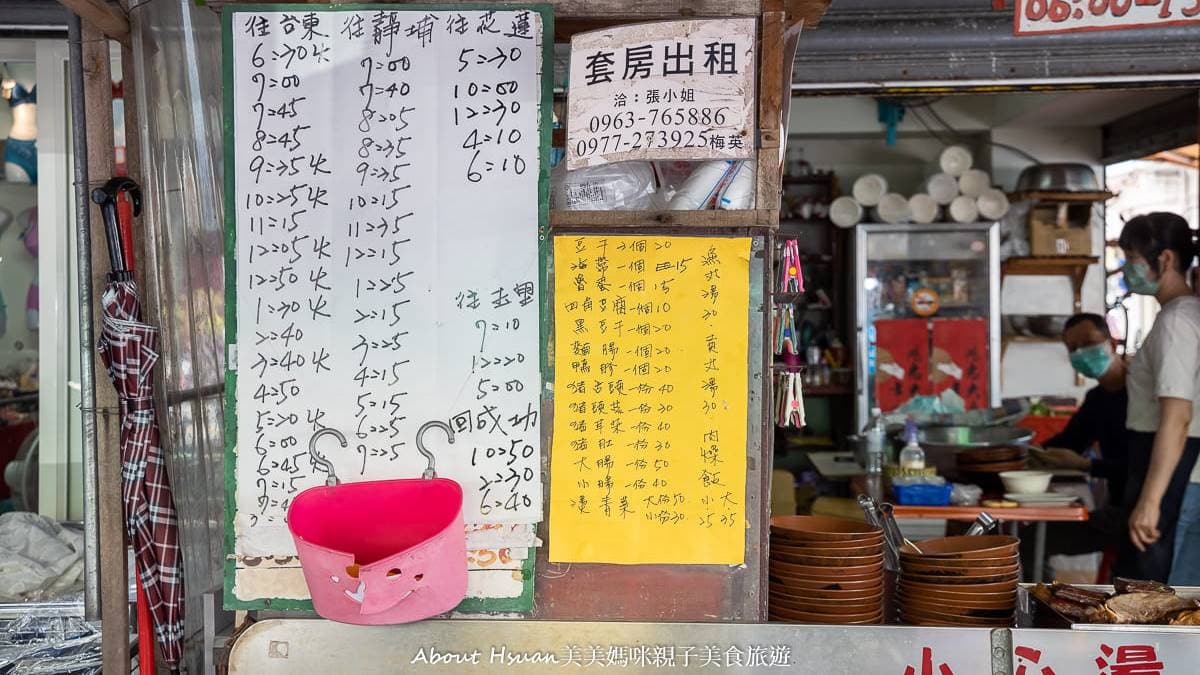 往台東
6=30火
7=00
7=45
8=45
9=35火
10=55火
11=15
12=05火
12=50火
1=30火
2=40
3=40火
4=50
5=20火
6=00
6=45火
7=15
往靜埔
7=00
7=40
8=05
8=35
9=35
10=15
11=35
12=15
1=25
2=15
3=25
4=15
5=15
6=25
7=25
往花蓮
5=30
10=00
12=30
4=10
6=10
往玉里
7=10
12=20
5=00
回成功
10=50
2=30
6=40
套房出租
洽：張小姐
0963-765886
0977-273925梅英
豆干2個20
海帶一個15
魯蛋一個15
四角豆腐一個10
黑豆干一個20
麵腸一個20
鴨胗一個20
豬舌頭一份40
豬頭菜一份30
豬耳朵一份40
豬肚一份30
大腸一份50
小腸一份40
燙青菜 大份50
小份30
漁丸湯30.貢丸湯30.
肉燥飯 小25 大35
小心湯
About Hsuan美美媽咪親子美食旅遊